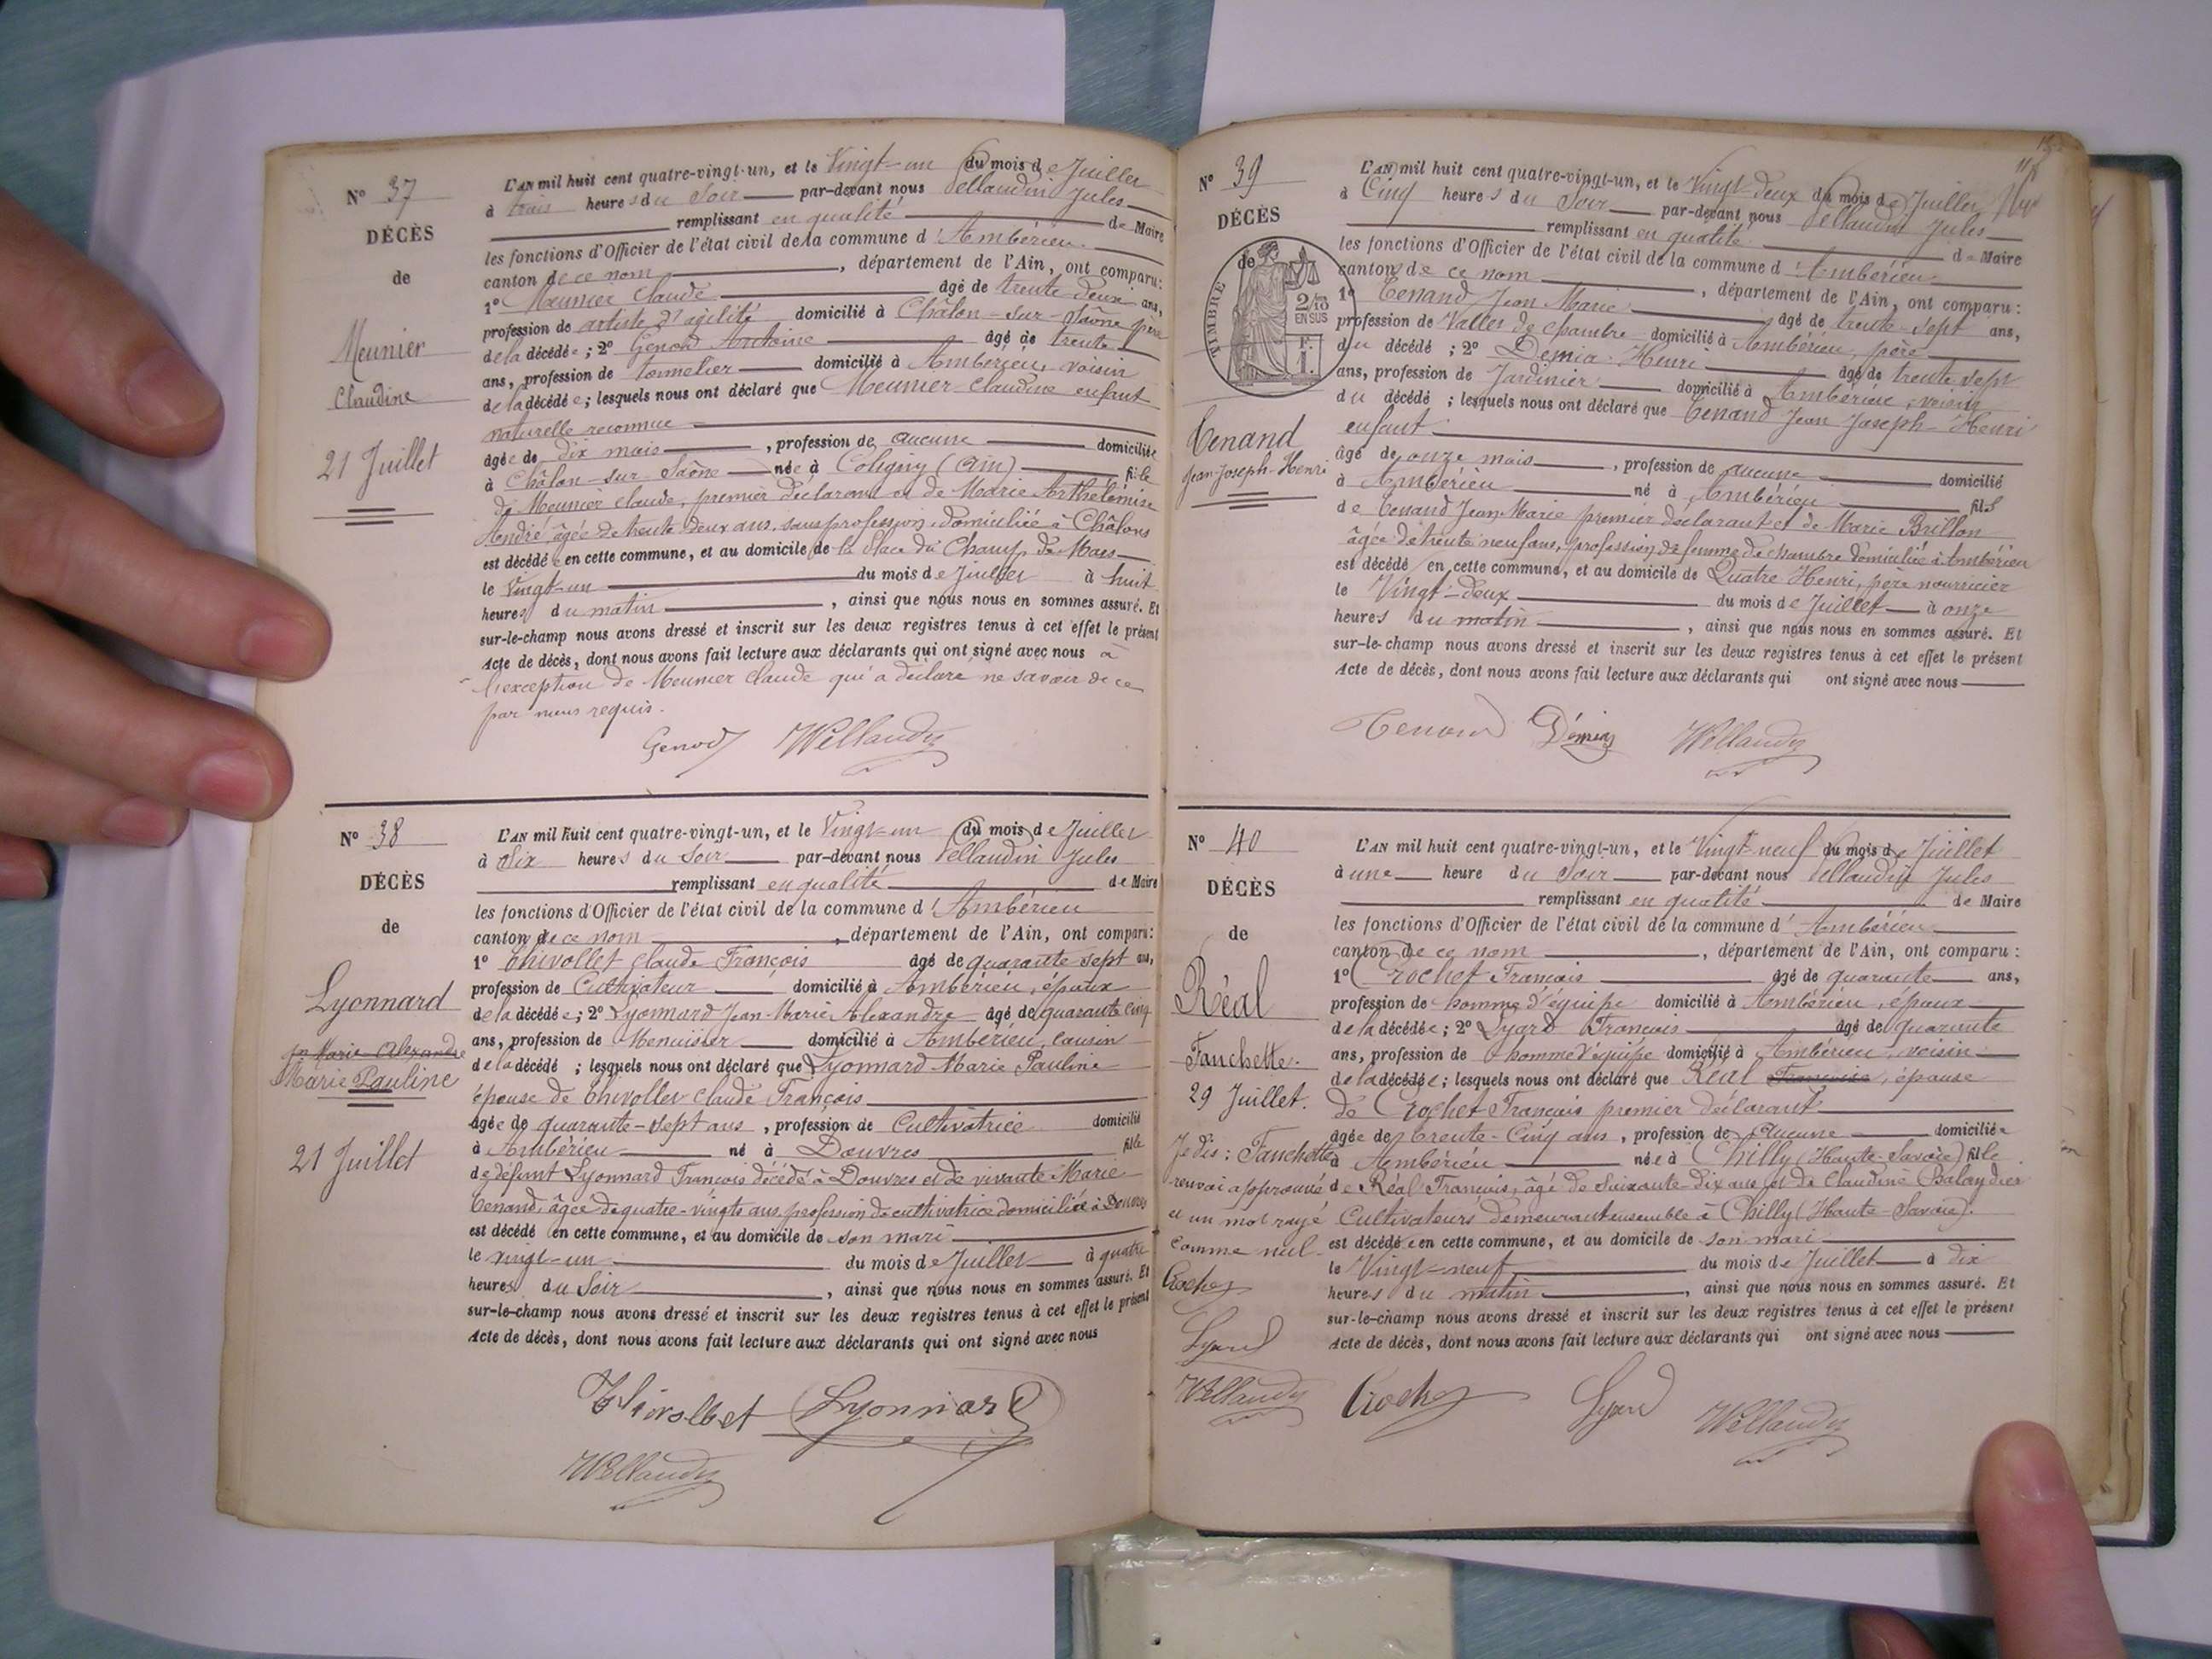 N° 37
DÉCÈS
de
Meunier
Claudine
21 Juillet
L'AN mil huit cent quatre-vingt-un, et le Vingt-un du mois de Juillet
à trois heures du Soir par-devant nous Vellaudin Jules
remplissant en qualité de Maire
les fonctions d'Officier de l'état civil de la commune d'Ambérieu
canton de ce nom, département de l'Ain, ont comparu:
1° Meunier Claude âgé de trente deux ans,
profession de artiste d'agilité domicilié à Châlon-sur-Saône père
de la décédée; 2° Genod Antoine âgé de trente
ans, profession de tonnelier domicilié à Ambérieu, voisin
de la décédée; lesquels nous ont déclaré que Meunier Claudine enfant
naturelle reconnue
âgée de dix mois, profession de aucune domiciliée
à Châlon-sur-Saône née à Coligny (Ain) fille
de Meunier Claude, premier déclarant et de Marie Arthélémise
André, âgée de trente deux ans, sans profession, domiciliée à Châlons
est décédée en cette commune, et au domicile de la Place du Champ de Mars
le Vingt-un du mois de Juillet à huit
heures du matin, ainsi que nous nous en sommes assuré. Et
sur-le-champ nous avons dressé et inscrit sur les deux registres tenus à cet effet le présent
Acte de décès, dont nous avons fait lecture aux déclarants qui ont signé avec nous à
l'exception de Meunier Claude qui a déclaré ne savoir de ce
par nous requis.
Genod Vellaudin
N° 38
DÉCÈS
de
Lyonnard
Jn Marie Alexandre
Marie Pauline
21 Juillet
L'AN mil huit cent quatre-vingt-un, et le Vingt-un du mois de Juillet
à Six heures du Soir par-devant nous Vellaudin Jules
remplissant en qualité de Maire
les fonctions d'Officier de l'état civil de la commune d'Ambérieu
canton de ce nom, département de l'Ain, ont comparu:
1° Chivollet Claude François âgé de quarante sept ans,
profession de Cultivateur domicilié à Ambérieu, époux
de la décédée; 2° Lyonnard Jean-Marie Alexandre âgé de quarante cinq
ans, profession de Menuisier domicilié à Ambérieu, cousin
de la décédé; lesquels nous ont déclaré que Lyonnard Marie Pauline
épouse de Chivollet Claude François
âgée de quarante-sept ans, profession de Cultivatrice domicilié
à Ambérieu né à Douvres fille
de défunt Lyonnard François décédé à Douvres et de vivante Marie
Tenand, âgée de quatre-vingts ans, profession de cultivatrice domiciliée à Douvres
est décédé en cette commune, et au domicile de son mari
le vingt-un du mois de Juillet à quatre
heures du Soir, ainsi que nous nous en sommes assuré. Et
sur-le-champ nous avons dressé et inscrit sur les deux registres tenus à cet effet le présent
Acte de décès, dont nous avons fait lecture aux déclarants qui ont signé avec nous
Chivollet Lyonnard
Vellaudin
N° 39
DÉCÈS
de
TIMBRE
2/10
EN SUS
F.
1.
Tenand
Jean-Joseph-Henri
L'AN mil huit cent quatre-vingt-un, et le Vingt-deux du mois de Juillet
à Cinq heures du Soir par-devant nous Vellaudin Jules
remplissant en qualité de Maire
les fonctions d'Officier de l'état civil de la commune d'Ambérieu
canton de ce nom, département de l'Ain, ont comparu:
1° Tenand Jean Marie âgé de trente-sept ans,
profession de Vallet de chambre domicilié à Ambérieu, père
du décédé; 2° Démia Henri âgé de trente sept
ans, profession de Jardinier domicilié à Ambérieu, voisin
du décédé; lesquels nous ont déclaré que Tenand Jean Joseph-Henri
enfant
âgé de onze mois, profession de aucune domicilié
à Ambérieu né à Ambérieu fils
de Tenand Jean Marie premier déclarant et de Marie Brillon
âgée de trente neuf ans, profession de femme de chambre domiciliée à Ambérieu
est décédé en cette commune, et au domicile de Quatre Henri, père nourricier
le Vingt-deux du mois de Juillet à onze
heures du matin, ainsi que nous nous en sommes assuré. Et
sur-le-champ nous avons dressé et inscrit sur les deux registres tenus à cet effet le présent
Acte de décès, dont nous avons fait lecture aux déclarants qui ont signé avec nous
Tenand Démia Vellaudin
N° 40
DÉCÈS
de
Réal
Fanchette.
29 Juillet.
Je dis: Fanchette
renvoi approuvé
et un mot rayé
comme nul
Crochet
Lyard
Vellaudin
L'AN mil huit cent quatre-vingt-un, et le Vingt-neuf du mois de Juillet
à une heure du Soir par-devant nous Vellaudin Jules
remplissant en qualité de Maire
les fonctions d'Officier de l'état civil de la commune d'Ambérieu
canton de ce nom, département de l'Ain, ont comparu:
1° Crochet François âgé de quarante ans,
profession de homme d'équipe domicilié à Ambérieu, époux
de la décédée; 2° Lyard François âgé de quarante
ans, profession de homme d'équipe domicilié à Ambérieu, voisin
de la décédée; lesquels nous ont déclaré que Réal Françoise, épouse
de Crochet François premier déclarant
âgée de trente-cinq ans, profession de Aucune domiciliée
à Ambérieu née à Chilly (Haute-Savoie) fille
de Réal François, âgé de Soixante-dix ans et de Claudine Balaydier
Cultivateurs demeurant ensemble à Chilly (Haute-Savoie).
est décédée en cette commune, et au domicile de son mari
le Vingt-neuf du mois de Juillet à dix
heures du matin, ainsi que nous nous en sommes assuré. Et
sur-le-champ nous avons dressé et inscrit sur les deux registres tenus à cet effet le présent
Acte de décès, dont nous avons fait lecture aux déclarants qui ont signé avec nous
Crochet Lyard Vellaudin